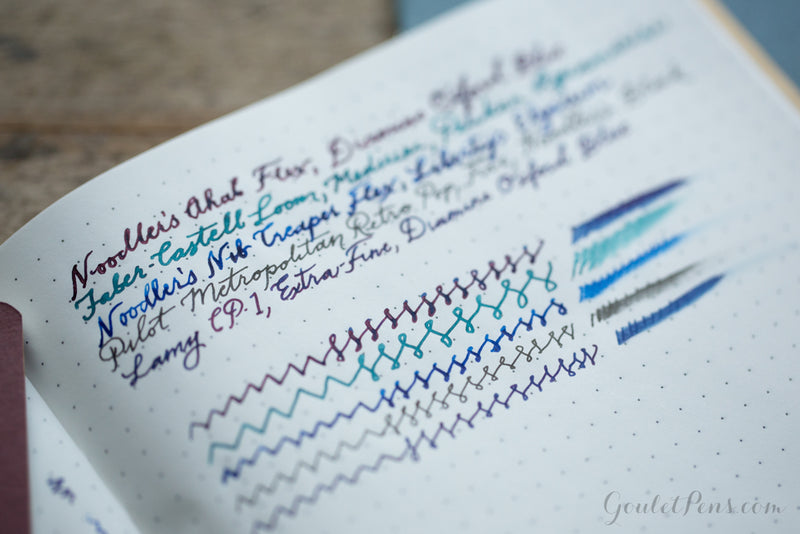 Noodler's Ahab Flex, Diamine Oxford Blue
Faber Castell Loom, Medium,
Noodler's Nib Creaper Flex, Liberty's Elysium
Pilot Metropolitan Retro Pop, Fine, Black
Lamy CP.1, Extra Fine, Diamine Oxford Blue
GouletPens.com